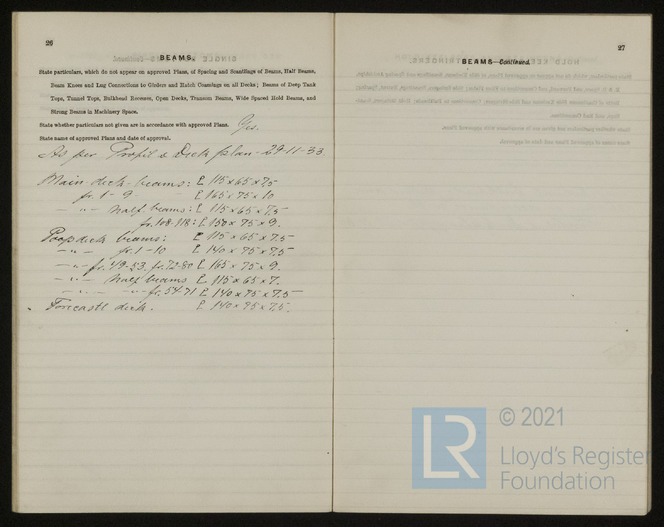 26
BEAMS.
State particulars, which do not appear on approved Plans, of Spacing and Scantlings of Beams, Half Beams,
Beam Knees and Lug Connections to Girders and Hatch Coamings on all Decks; Beams of Deep Tank
Tops, Tunnel Tops, Bulkhead Recesses, Open Decks, Transom Beams, Wide Spaced Hold Beams, and
Strong Beams in Machinery Space.
State whether particulars not given are in accordance with approved Plans. Yes.
State name of approved Plans and date of approval.
As per Profil & Deck plan - 29-11-33.
Main-deck-beams: L 115 x 65 x 7,5
fr. 1 - 9 L 165 x 75 x 10
— " — half beams: L 115 x 65 x 7,5
fr. 108-118: L 150 x 75 x 9.
Poopdeck beams: L 115 x 65 x 7.5
— " — fr. 1-10 L 140 x 75 x 7,5
— " — fr. 49-53, fr. 72-80 L 165 x 75 x 9.
— " — half beams L 115 x 65 x 7.
— " — — " — fr. 54-71 L 140 x 75 x 7.5
Forecastl deck. L 140 x 75 x 7,5.
27
BEAMS—Continued.
LR
© 2021
Lloyd's Register
Foundation